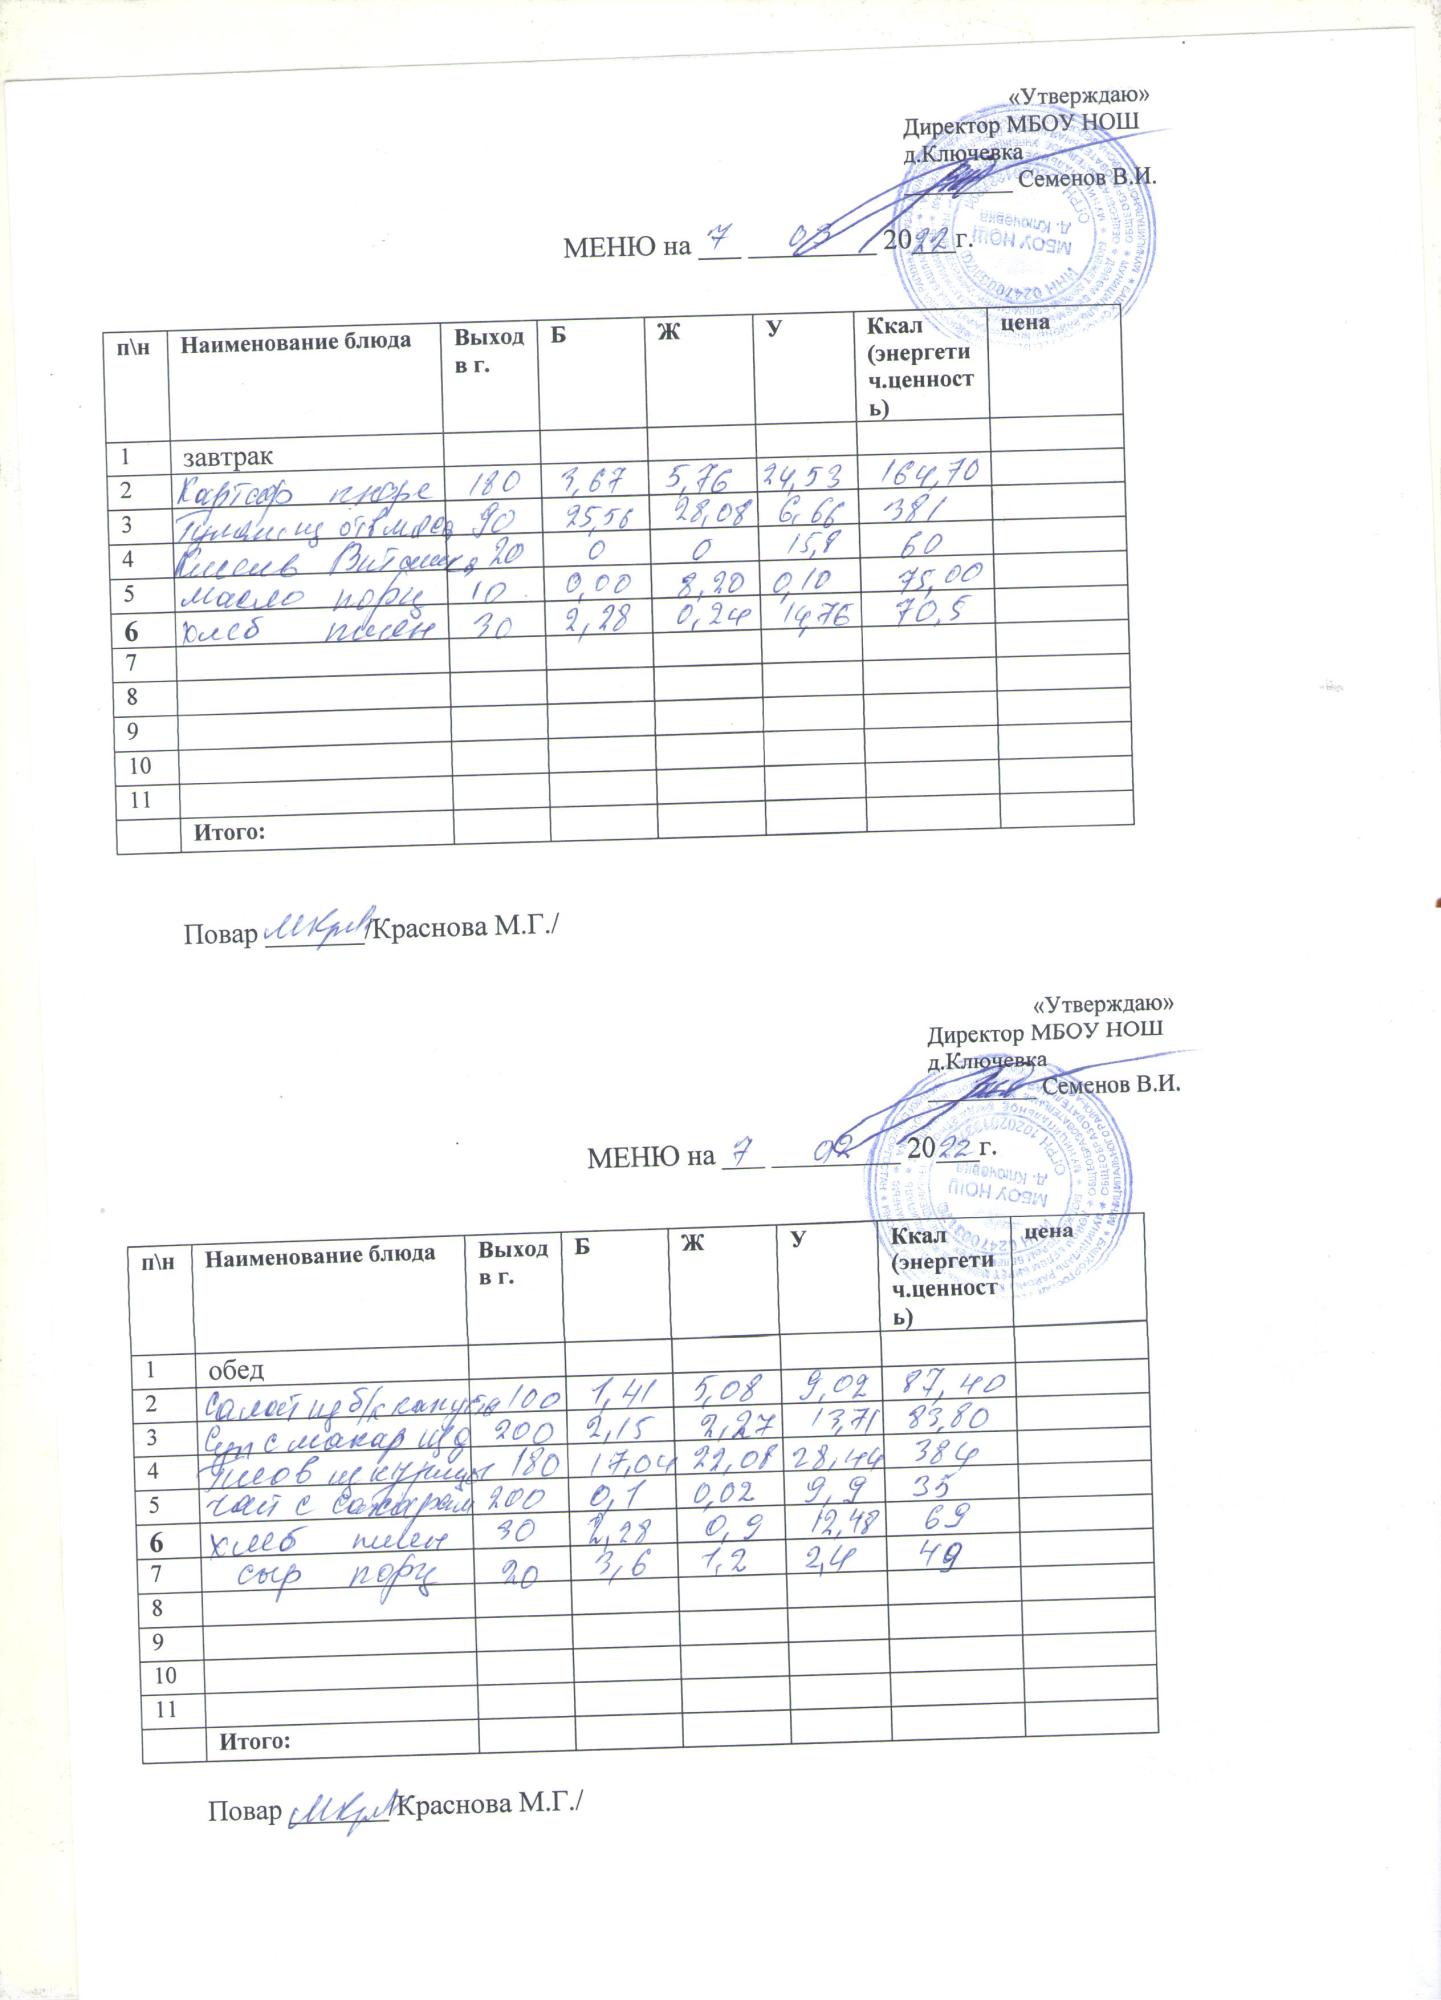 «Утверждаю»
Директор МБОУ НОШ
д.Ключевка
Семенов В.И.
МЕНЮ на 7 03 2022г.
п\н Наименование блюда Выход в г. Б Ж У Ккал (энергетич.ценность) цена
1 завтрак
2 Картоф пюре 180 3,67 5,76 24,53 164,70
3 отв мяса 90 25,56 28,08 6,66 381
4 Витошка 20 0 0 15,8 60
5 масло порц 10 0,00 8,20 0,10 75,00
6 хлеб пшен 30 2,28 0,24 14,76 70,5
7
8
9
10
11
Итого:
Повар /Краснова М.Г./
«Утверждаю»
Директор МБОУ НОШ
д.Ключевка
Семенов В.И.
МЕНЮ на 7 02 2022г.
п\н Наименование блюда Выход в г. Б Ж У Ккал (энергетич.ценность) цена
1 обед
2 Салат из б/к капусты 100 1,41 5,08 9,02 87,40
3 Суп с макар изд 200 2,15 2,27 13,71 83,80
4 Плов из курицы 180 17,04 22,08 28,44 384
5 чай с сахарам 200 0,1 0,02 9,9 35
6 хлеб пшен 30 2,28 0,9 12,48 69
7 сыр порц 20 3,6 1,2 2,4 49
8
9
10
11
Итого:
Повар /Краснова М.Г./
МБОУ НОШ
д. Ключевка